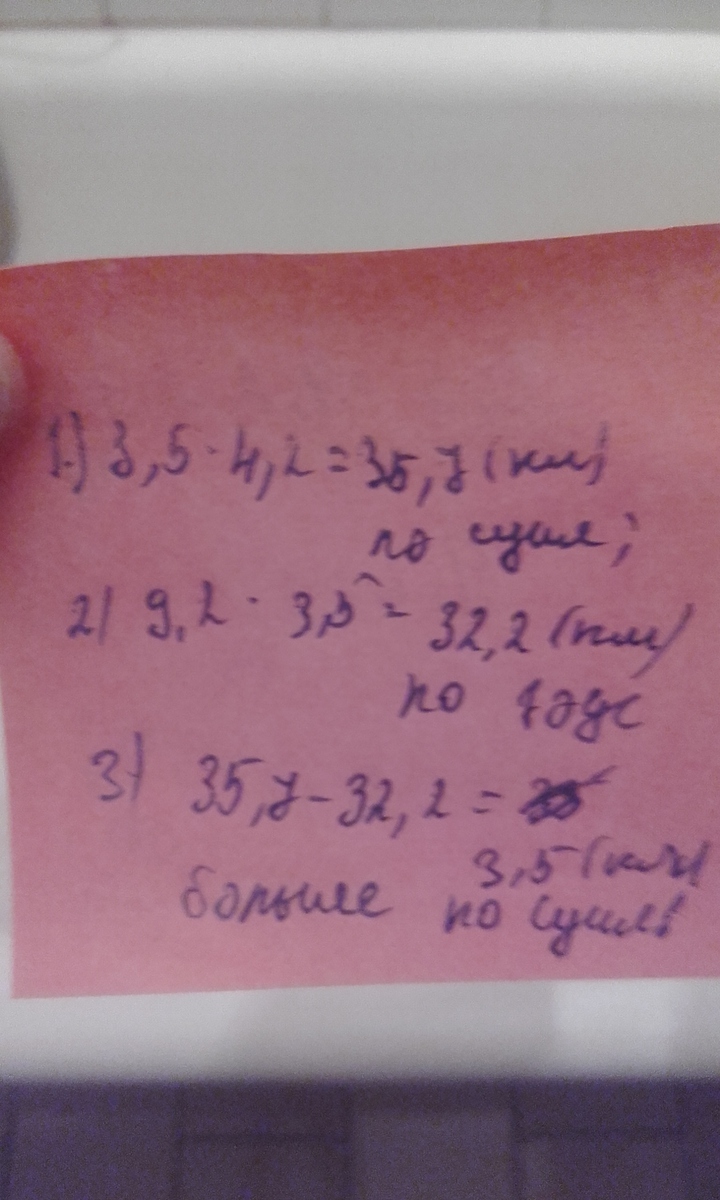 1.) 8,5 · 4,2 = 35,7 (км)
по суше;
2) 9,2 · 3,5 = 32,2 (км)
по
3) 35,7 - 32,2 =
3,5 (км)
больше по суше